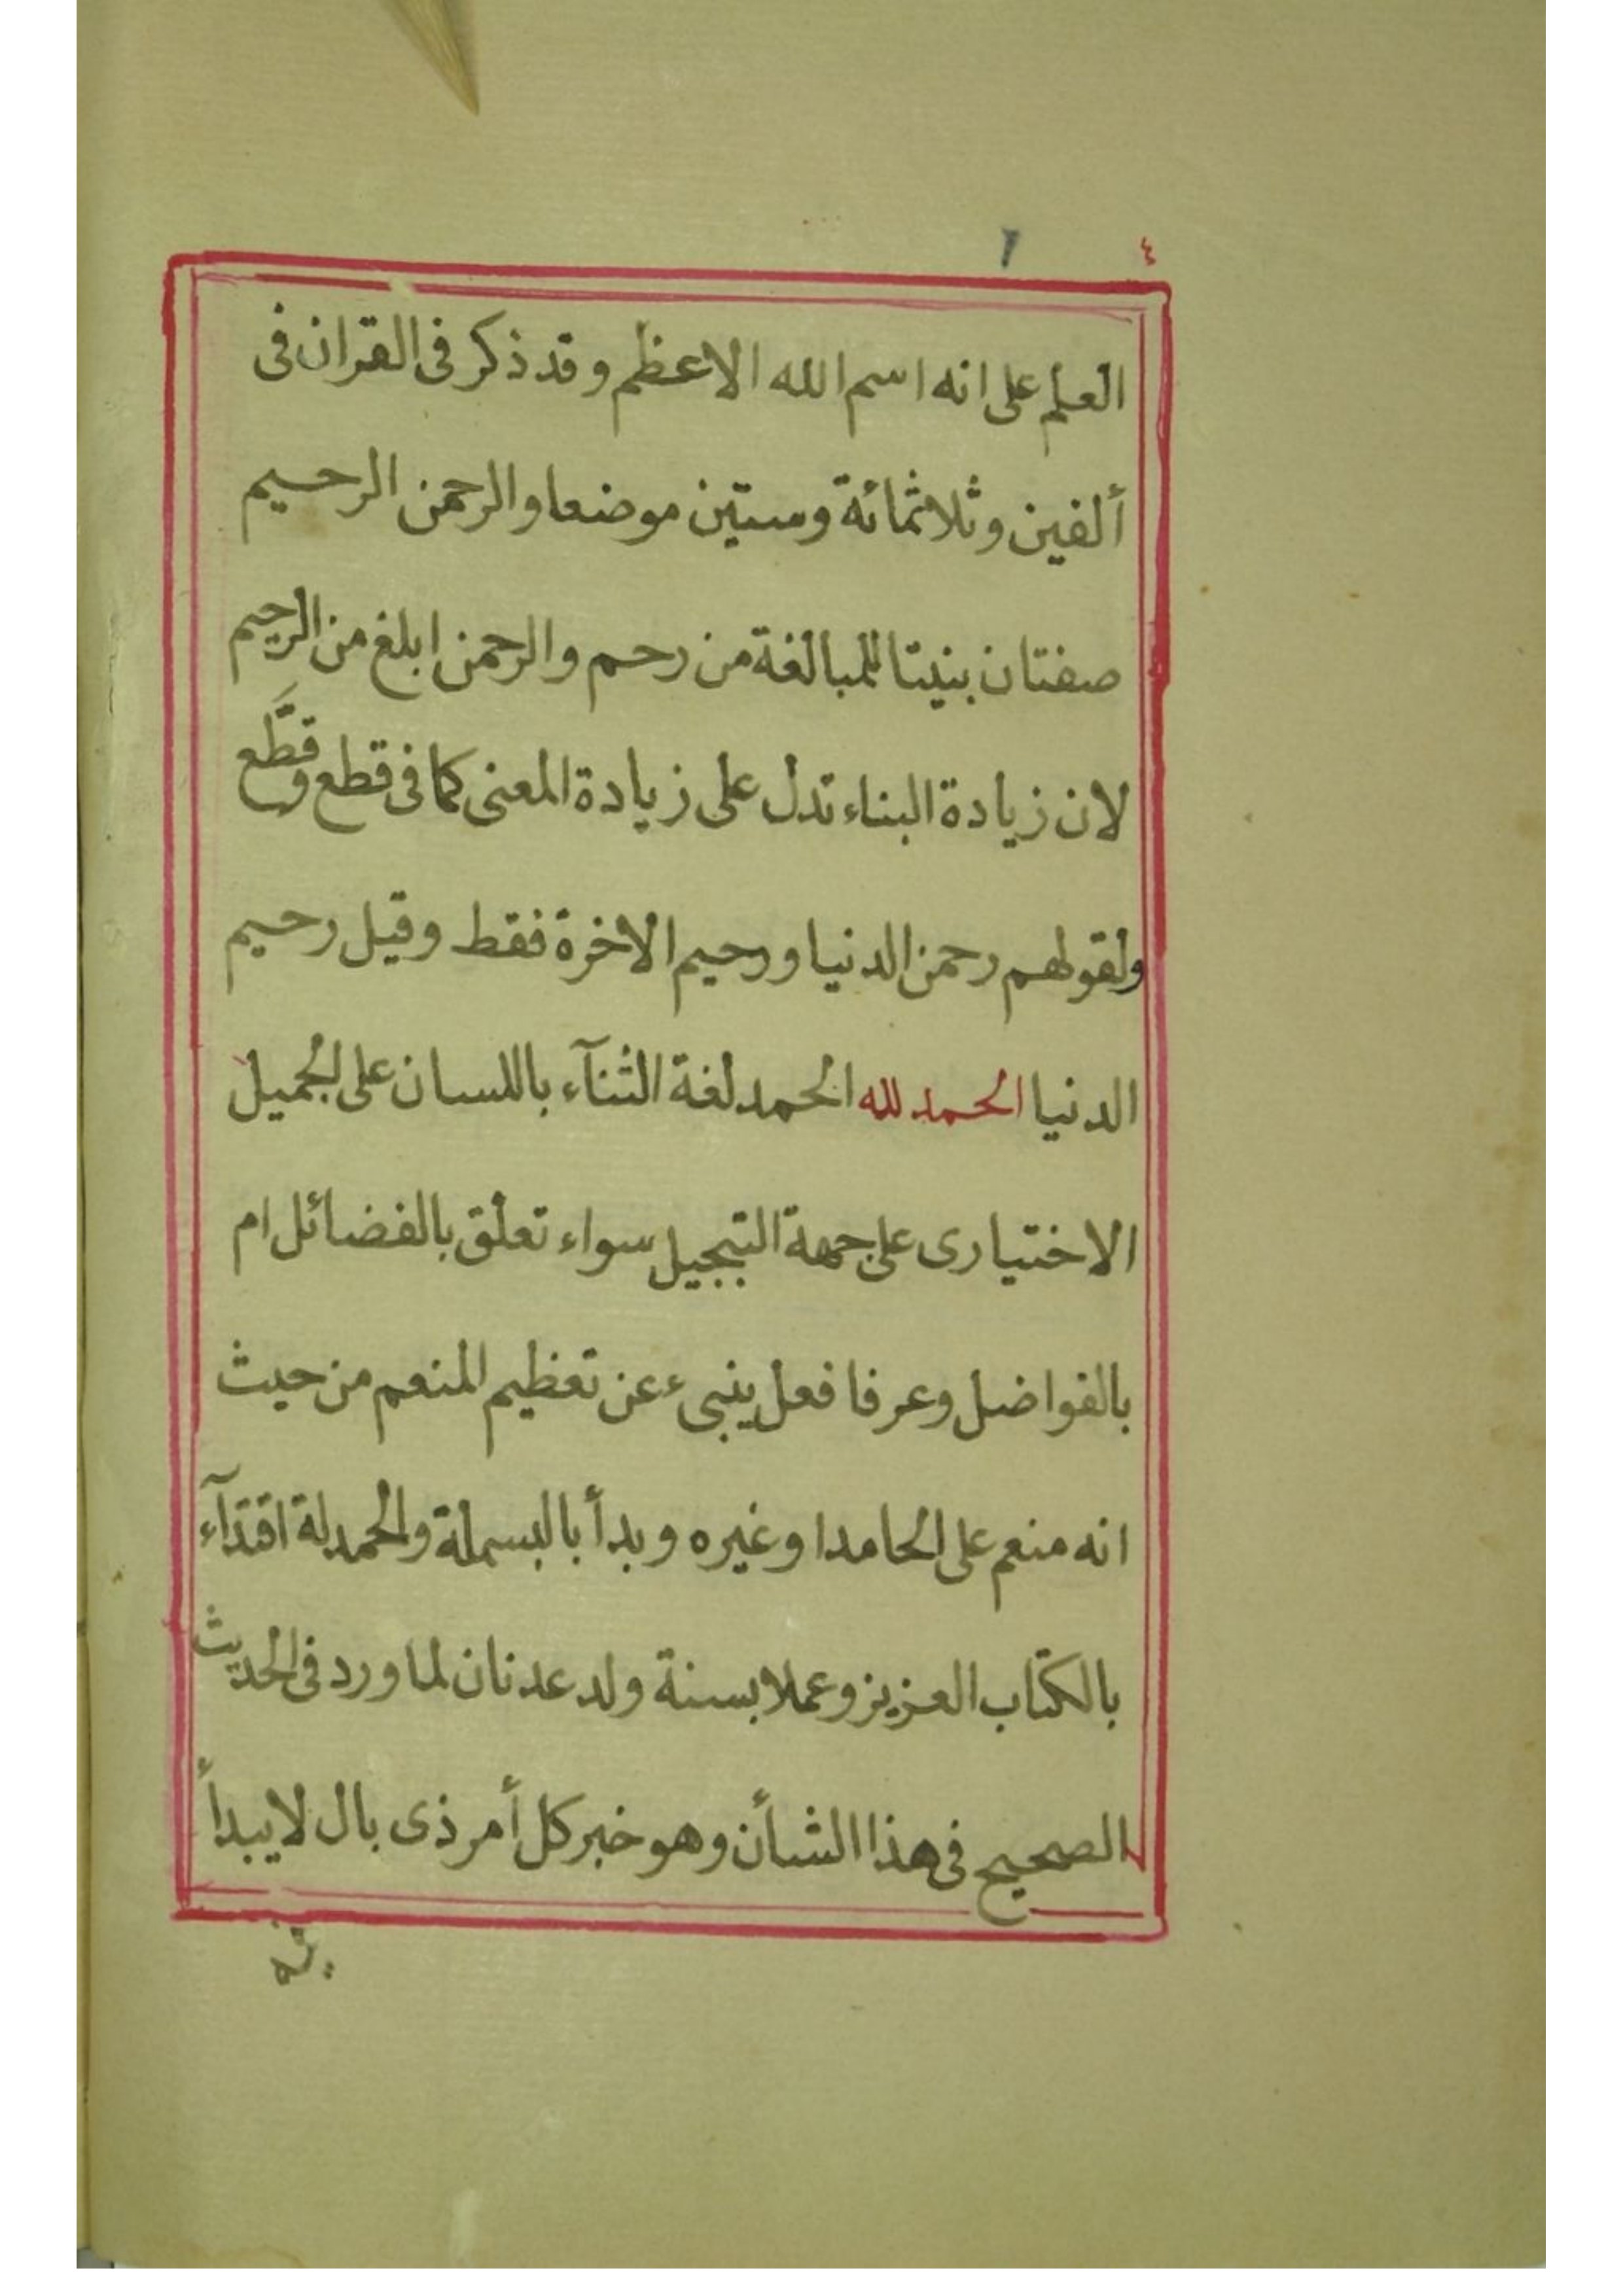 ٤
العلم على انه اسم الله الاعظم وقد ذكر فى القران فى
ألفين وثلاثمائة وستين موضعا والرحمن الرحيم
صفتان بنيتا للمبالغة من رحم والرحمن ابلغ من الرحيم
لان زيادة البناء تدل على زيادة المعنى كما فى قطع وقطَّع
ولقولهم رحمن الدنيا ورحيم الاخرة فقط وقيل رحيم
الدنيا الحمد لله الحمد لغة الثنآء باللسان على الجميل
الاختيارى على جهة التبجيل سواء تعلق بالفضائل ام
بالفواضل وعرفا فعل ينبىء عن تعظيم المنعم من حيث
انه منعم على الحامد او غيره وبدأ بالبسملة والحمدلة اقتدآء
بالكتاب العزيز وعملا بسنة ولد عدنان لما ورد فى الحديث
الصحيح فى هذا الشأن وهو خبر كل أمر ذى بال لا يبدأ
فيه